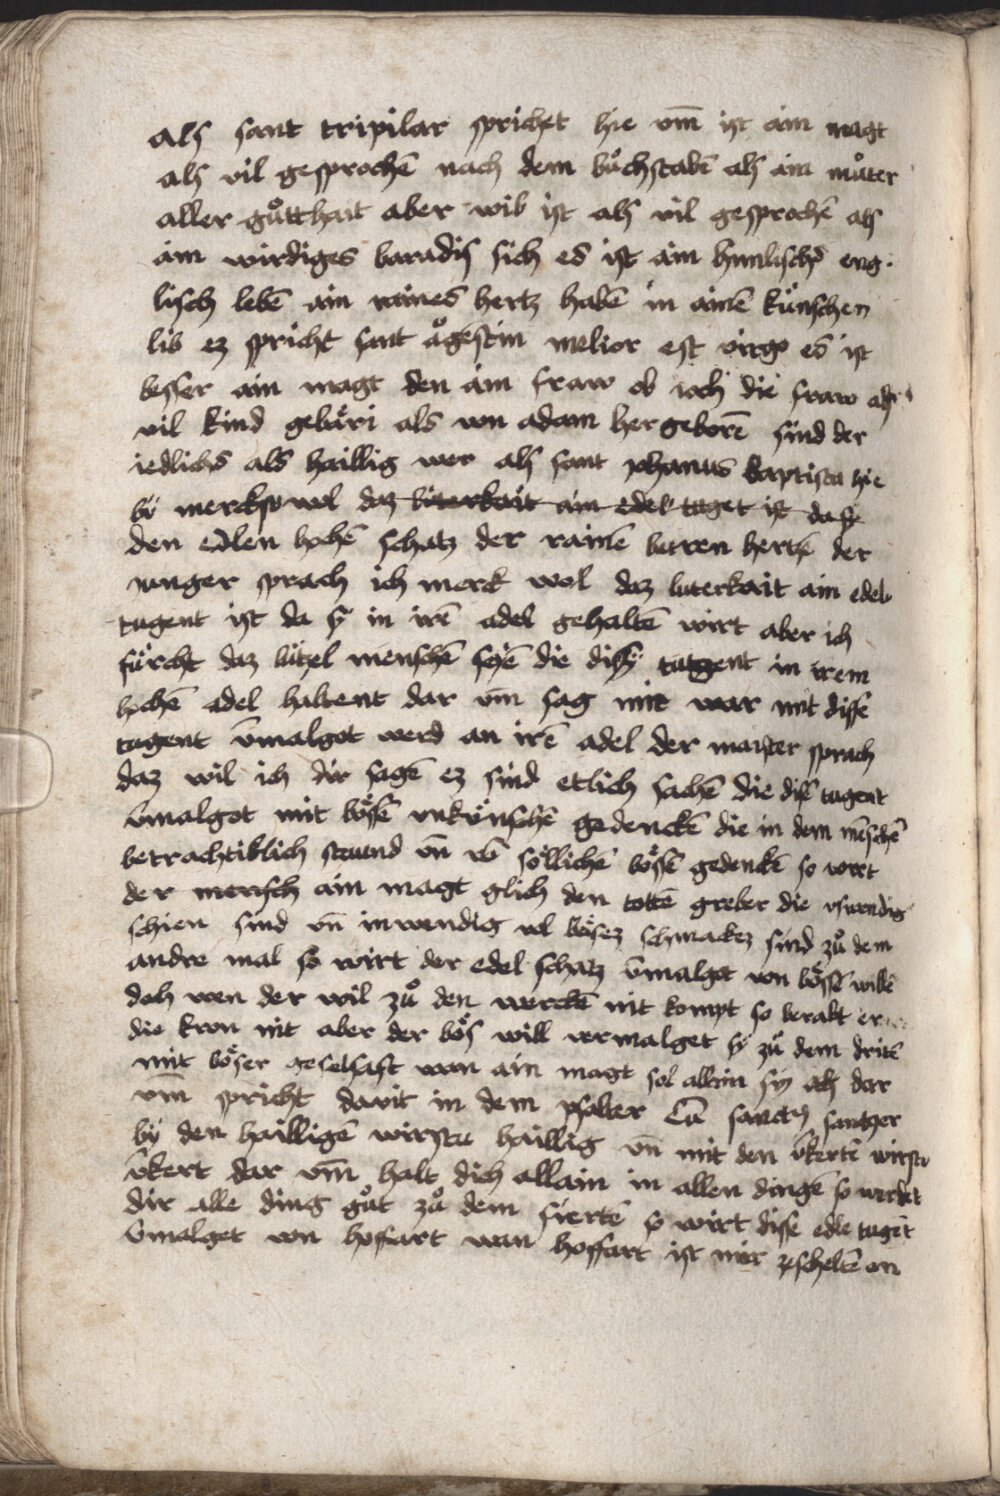 als sant tripilar sprichet hie vm̄ ist ain magt
als vil gesprochē nach dem bůchstabē als ain můter
aller gůtthait aber wib ist als vil gesprochē als
ain wirdiges baradis sich es ist ain himlischs eng-
lisch lebē ain raines hertz habē in ainē künschen
lib ez spricht sant ågestin melior est virgo es ist
besser ain magt den ain fraw ob ioch die fraw als
vil kind gebäri als von adam her geborē sind der
iedlichs als haillig wer als sant johanns baptista hie
bÿ merkst wol daz luterkait ain edel tuget ist dast
den edlen hochē schatz der rainē luttren hertzē der
iunger sprach ich merck wol daz luterkait ain edel
tugent ist da sÿ in irē adel gehaltē wirt aber ich
fürcht daz lützel menschē seyē die disse tutgent in irem
hochē adel haltent dar vm̄ sag mir war mit disse
tugent v̄malgot werd an irē adel der maister sprach
daz wil ich dir sagē ez sind etlich sachē die disē tugent
v̄malgot mit bösē vnkünschē gedenckē die in dem mēschē
betrachtiklich stuend vn̄ vō söllichē bössē gedenckē so wirt
der mensch ain magt glich den tottē greber die vswendig
schien sind vn̄ inwendig vol bösez schmackez sind zů dem
andre mal so wirt der edel schatz v̄malgot von bössē willē
doch wen der wil zů den werckē nit kompt so berabt er
die kron nit aber der bös will vermalget sÿ zů dem dritē
mit böser geselsaft wan ain magt sol allain sin als dar
vm̄ spricht davit in dem psalter Cū sancto
bÿ den hailligē wirstu haillig vn̄ mit den v̄kertē wirstu
v̄kert dar vm̄ halt dich allain in allen dingē so werdet
dir alle ding gůt zů dem fiertē so wirt disse edle tugēt
v̄malget von hoffart wan hoffart ist mir zescheltē an